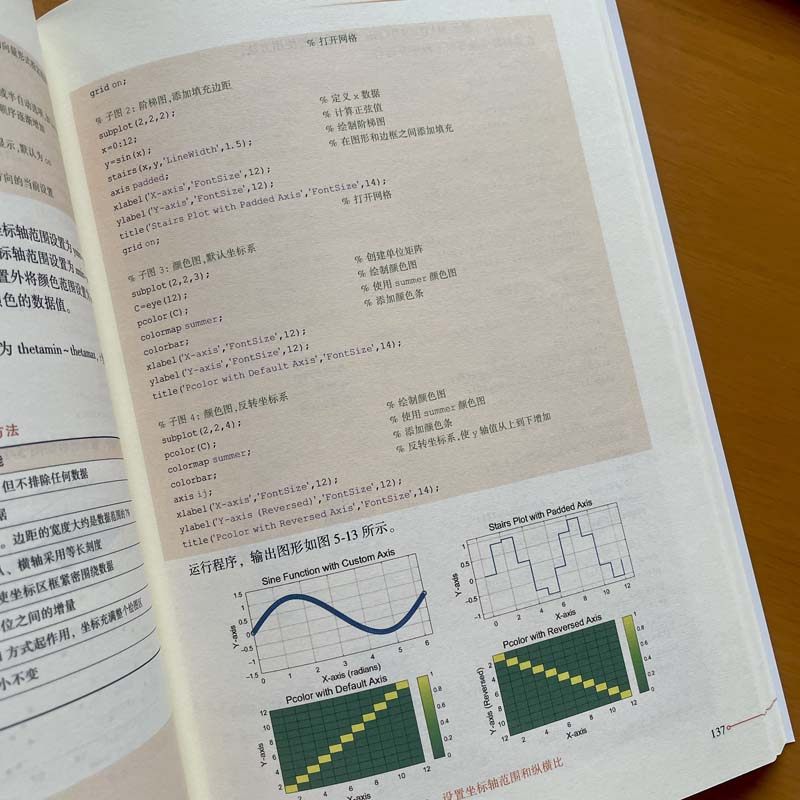 向量形式
或半自动选项
顺序逐渐增加
显示,默认为 on
方向的当前设置
坐标轴范围设置为
标轴范围设置为
置外将颜色范围设置为
颜色的数据值。
为 thetamin~thetamax,
方法
能
但不排除任何数据
据
。边距的宽度大约是数据范围的 7%
、横轴采用等长刻度
使坐标区框紧密围绕数据
位之间的增量
方式起作用,坐标充满整个绘图区
小不变
grid on; % 打开网格
% 子图 2: 阶梯图,添加填充边距
subplot(2,2,2);
x=0:12; % 定义 x 数据
y=sin(x); % 计算正弦值
stairs(x,y,'LineWidth',1.5); % 绘制阶梯图
axis padded; % 在图形和边框之间添加填充
xlabel('X-axis','FontSize',12);
ylabel('Y-axis','FontSize',12);
title('Stairs Plot with Padded Axis','FontSize',14);
grid on; % 打开网格
% 子图 3: 颜色图,默认坐标系
subplot(2,2,3);
C=eye(12); % 创建单位矩阵
pcolor(C); % 绘制颜色图
colormap summer; % 使用 summer 颜色图
colorbar; % 添加颜色条
xlabel('X-axis','FontSize',12);
ylabel('Y-axis','FontSize',12);
title('Pcolor with Default Axis','FontSize',14);
% 子图 4: 颜色图,反转坐标系
subplot(2,2,4);
pcolor(C); % 绘制颜色图
colormap summer; % 使用 summer 颜色图
colorbar; % 添加颜色条
axis ij; % 反转坐标系,使 y 轴值从上到下增加
xlabel('X-axis','FontSize',12);
ylabel('Y-axis (Reversed)','FontSize',12);
title('Pcolor with Reversed Axis','FontSize',14);
运行程序,输出图形如图 5-13 所示。
Sine Function with Custom Axis
Y-axis
1.5
1
0.5
0
-0.5
-1
-1.5
0 1 2 3 4 5 6
X-axis (radians)
Stairs Plot with Padded Axis
Y-axis
1
0.5
0
-0.5
-1
0 2 4 6 8 10 12
X-axis
Pcolor with Default Axis
Y-axis
12
10
8
6
4
2
2 4 6 8 10 12
X-axis
1
0.8
0.6
0.4
0.2
0
Pcolor with Reversed Axis
Y-axis (Reversed)
2
4
6
8
10
12
2 4 6 8 10 12
X-axis
1
0.8
0.6
0.4
0.2
0
设置坐标轴范围和纵横比
137